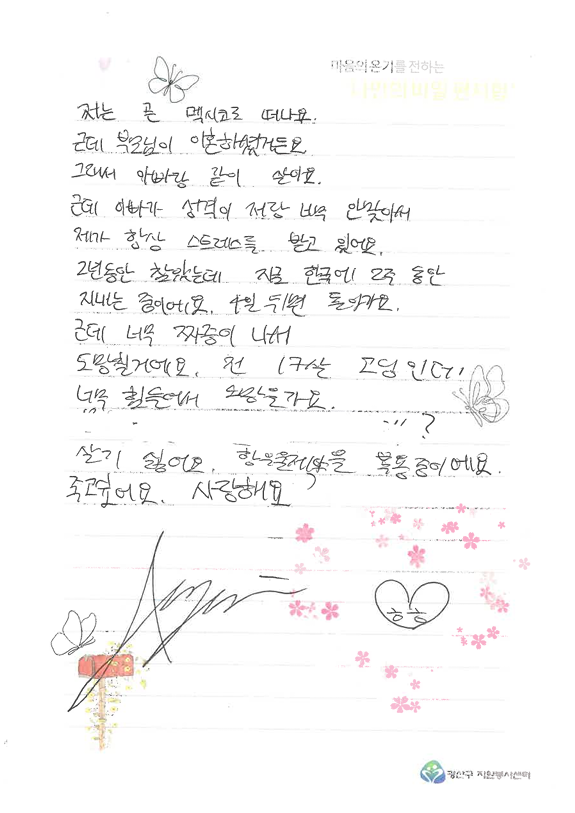 마음의 온기를 전하는
저는 곧 멕시코로 떠나요.
근데 부모님이 이혼하였거든요
그래서 아빠랑 같이 살아요.
근데 아빠가 성격이 저랑 너무 안맞아서
제가 항상 스트레스를 받고 있어요.
2년동안 참았는데 지금 한국에 2주 동안
지내는 중이에요. 4일 뒤면 돌아가요.
근데 너무 짜증이 나서
도망칠거에요. 전 17살 고딩인데,
너무 힘들어서 도망을가요.
?
살기 싫어요. 항우울제약을 복용중이에요.
죽고싶어요. 사랑해요
ㅎㅎ
광산구 자원봉사센터